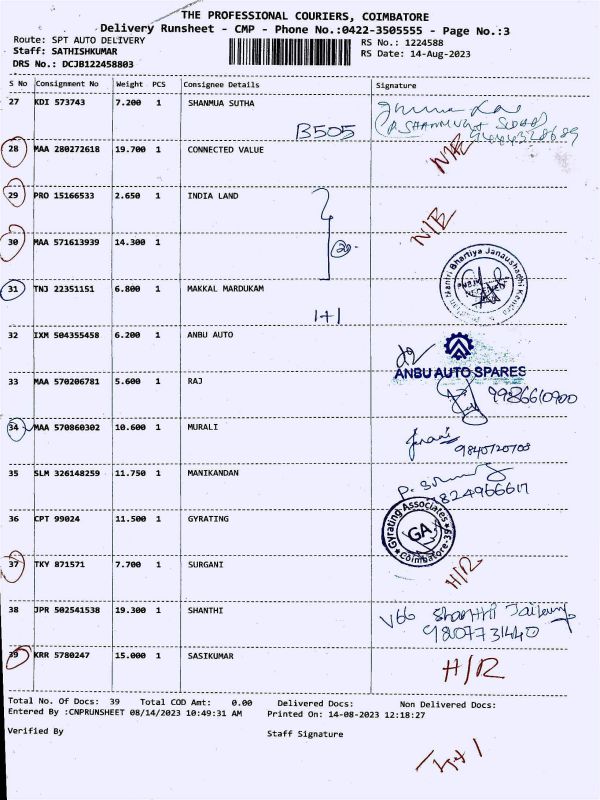 THE PROFESSIONAL COURIERS, COIMBATORE
Delivery Runsheet - CMP - Phone No.:0422-3505555 - Page No.:3
Route: SPT AUTO DELIVERY
RS No.: 1224588
Staff: SATHISHKUMAR
RS Date: 14-Aug-2023
DRS No.: DCJB122458803
S No Consignment No Weight PCS Consignee Details Signature
27 KDI 573743 7.200 1 SHANMUA SUTHA
B505
28 MAA 280272618 19.700 1 CONNECTED VALUE
29 PRO 15166533 2.650 1 INDIA LAND
30 MAA 571613939 14.300 1
31 TNJ 22351151 6.800 1 MAKKAL MARDUKAM
1+1
32 IXM 504355458 6.200 1 ANBU AUTO
ANBU AUTO SPARES
33 MAA 570206781 5.600 1 RAJ
9986610900
34 MAA 570860302 10.600 1 MURALI
9840720703
35 SLM 326148259 11.750 1 MANIKANDAN
9824966617
36 CPT 99024 11.500 1 GYRATING
Gyrating Associates GA Coimbatore-36
37 TKY 871571 7.700 1 SURGANI
H/R
38 JPR 502541538 19.300 1 SHANTHI
V66 Shanthi
9807731440
39 KRR 5780247 15.000 1 SASIKUMAR
H/R
Total No. Of Docs: 39 Total COD Amt: 0.00 Delivered Docs: Non Delivered Docs:
Entered By :CNPRUNSHEET 08/14/2023 10:49:31 AM Printed On: 14-08-2023 12:18:27
Verified By Staff Signature